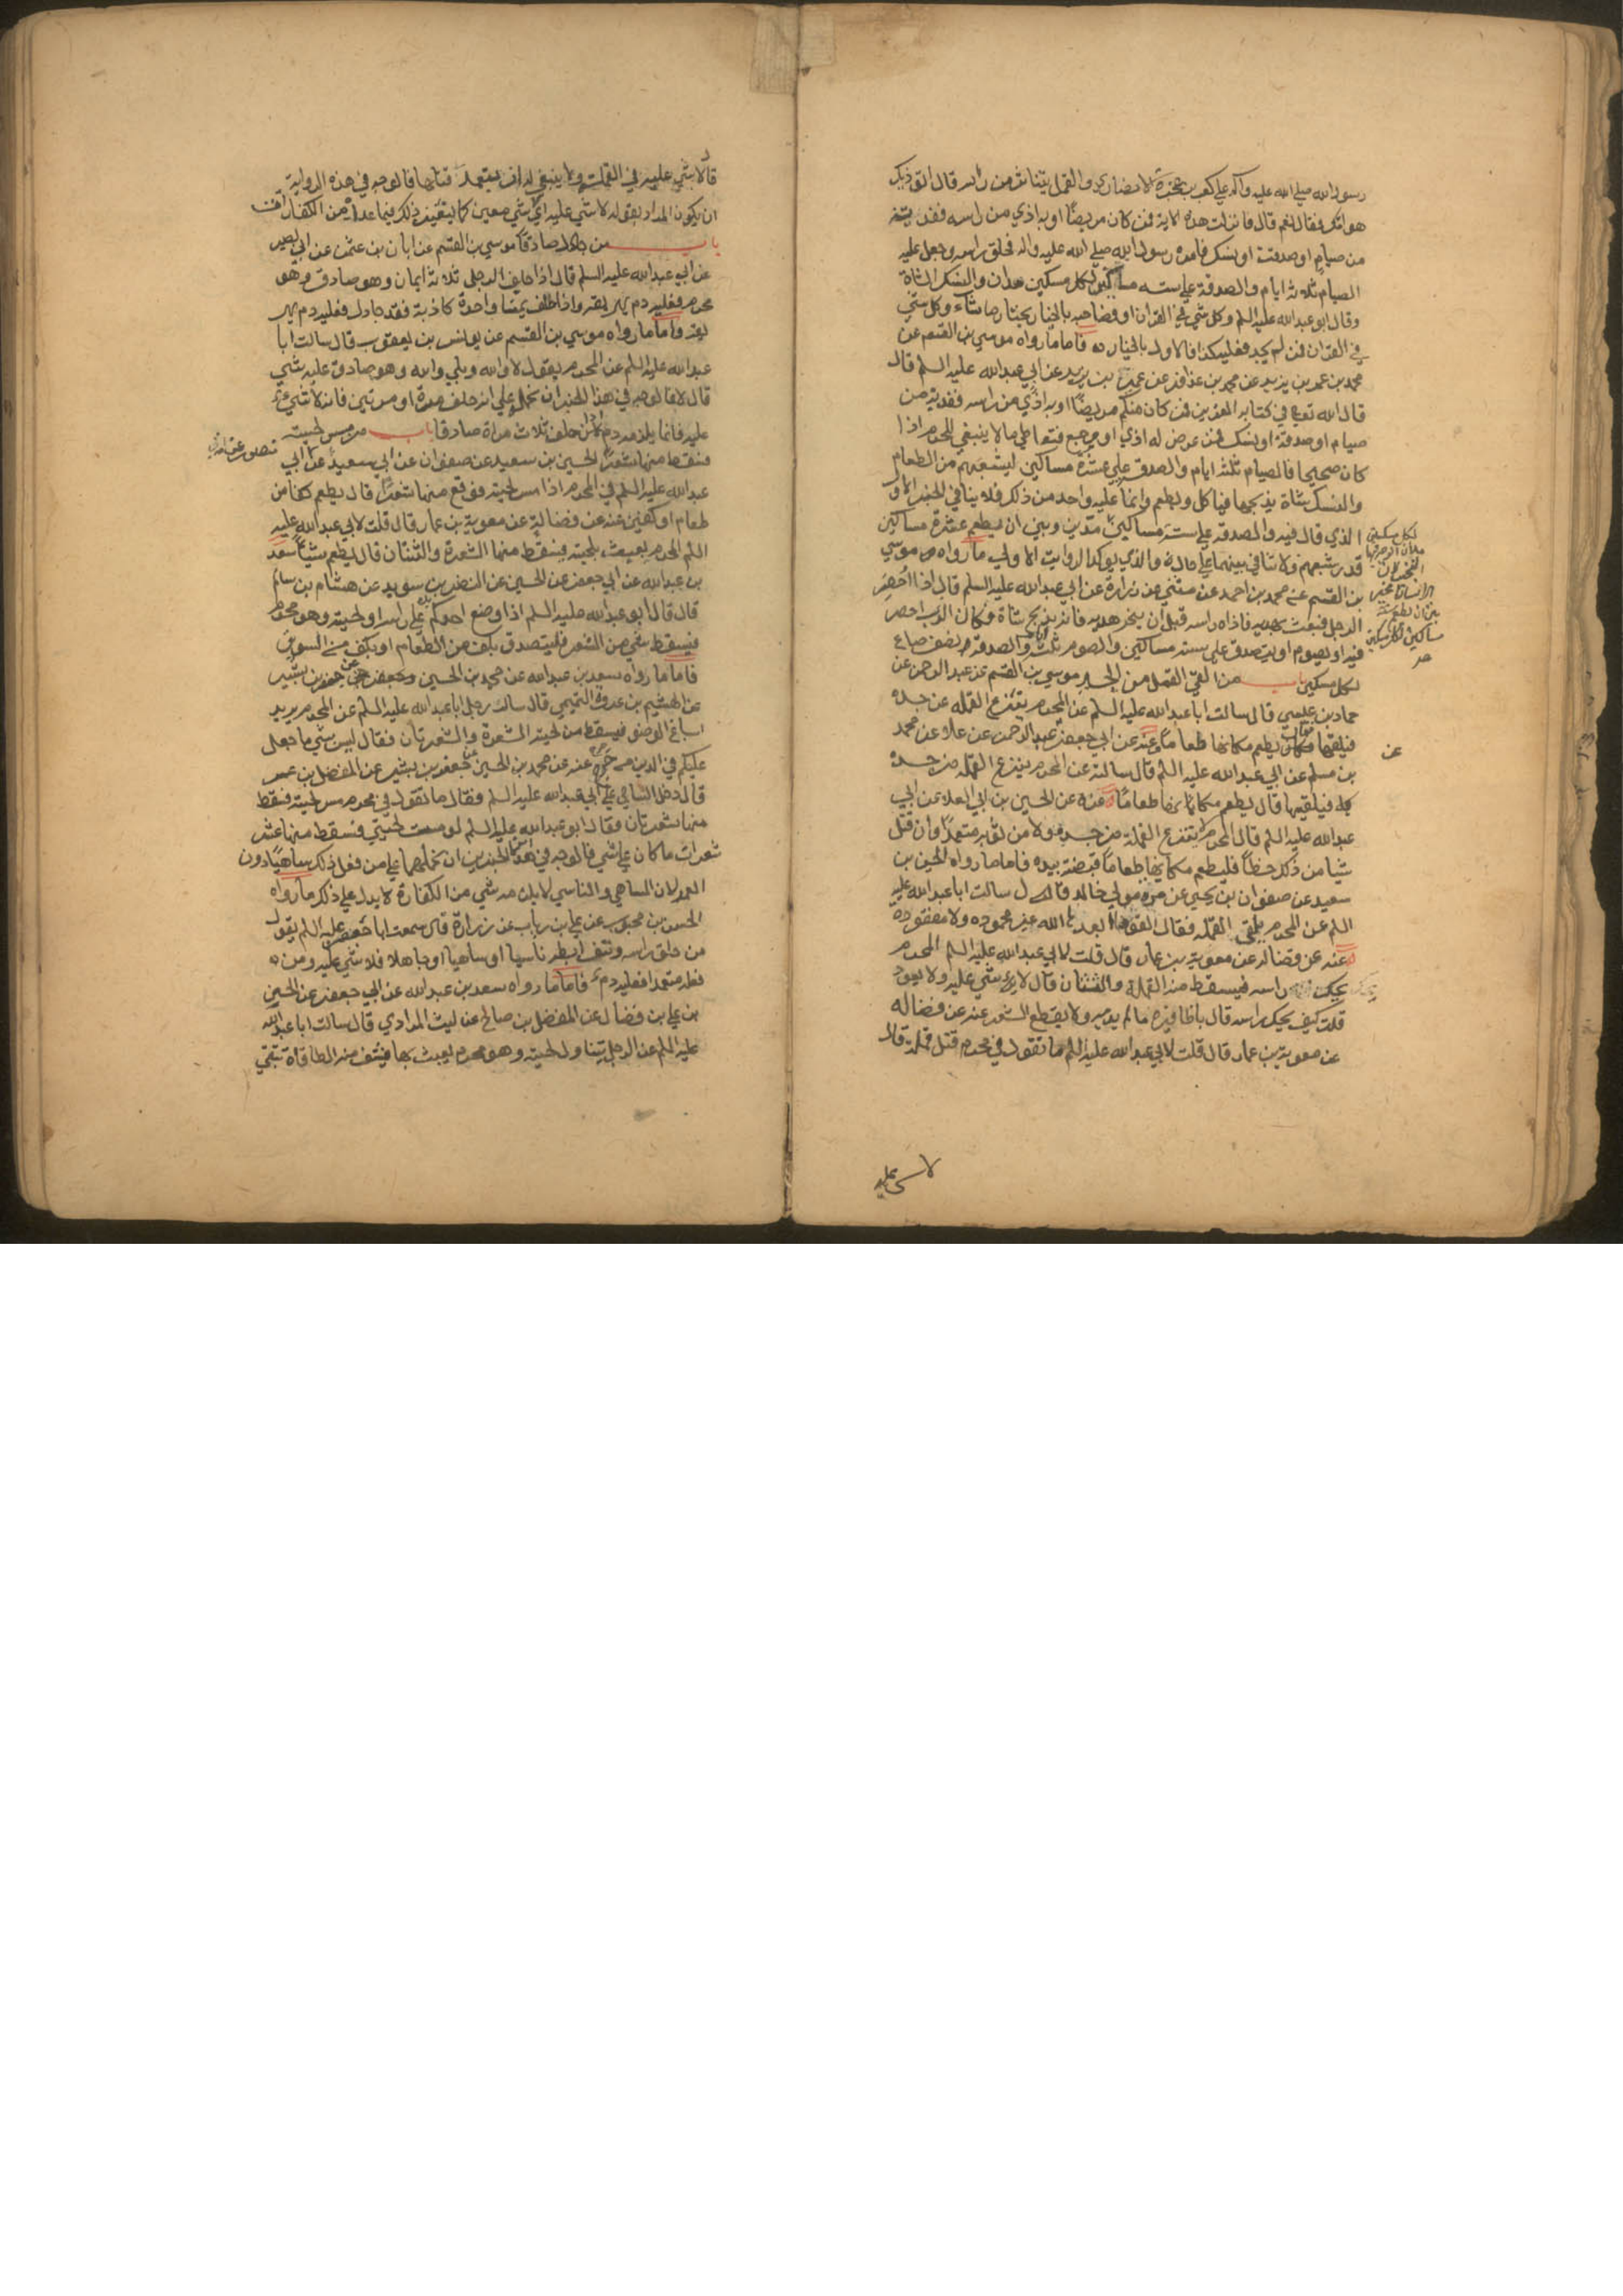 رسول الله صلي الله عليه وآله علي كعب بن عجرة الانصاري والقمل يتناثر من راسه قال اتوذيك
هوامك فقال نعم قال فانزلت هذه الاية فمن كان مريضًا او به اذي من راسه ففدية
من صيام او صدقة او نسك فامره رسول الله صلي الله عليه واله فحلق راسه وجعل عليه
الصيام ثلاثة ايام والصدقة علي ستة مساكين لكل مسكين مدان والنسك شاة
وقال ابو عبدالله عليه السلم وكل شي في القران او فصاحبه بالخيار يختار ما شاء وكل شي
في القران فمن لم يجد فعليه كذا فالاول بالخيار فاما ما رواه موسي بن القسم عن
محمد بن عمر بن يزيد عن محمد بن عذافر عن عمر بن يزيد عن ابي عبدالله عليه السلم قال
قال الله تعالي في كتابه العزيز فمن كان منكم مريضًا او به اذي من راسه ففدية من
صيام او صدقة او نسك فمن عرض له اذي او وجع فتعاطي ما لا ينبغي للمحرم اذا
كان صحيحا فالصيام ثلثة ايام والصدقة علي عشرة مساكين يشبعهم من الطعام
والنسك شاة يذبحها فياكل ويطعم وانما عليه واحد من ذلك فلا ينافي الخبر الاول
الذي قال فيه والصدقة علي ستة مساكين مدين وبين ان يطعم عشرة مساكين
لكل مسكين
قدر شبعهم ولا تنافي بينهما علي حال والذي يوكد الرواية الاولي ما رواه موسي
بن القسم عن محمد بن احمد عن مثني عن زرارة عن ابي عبدالله عليه السلم قال اذا احصر
الرجل فبعث بهديه فاذاه راسه قبل ان ينحر هديه فانه يذبح شاة مكان الذي احصر
فيه او يصوم او يتصدق علي ستة مساكين والصوم ثلثة ايام والصدقة نصف صاع
لكل مسكين باب من القي القمل من الجسد موسي بن القسم عن عبد الرحمن عن
حماد بن عيسي قال سالت ابا عبدالله عليه السلم عن المحرم ينزع القملة عن جسده
فيلقيها فقال يطعم مكانها طعاما وعنه عن ابي جعفر عن عبد الرحمن عن علاء عن محمد
بن مسلم عن ابي عبدالله عليه السلم قال سالته عن المحرم ينزع القملة من جسده
فيلقيها قال يطعم مكانها طعامًا عنه عن الحسين بن ابي العلاء عن ابي
عبدالله عليه السلم قال المحرم لا ينزع القملة من جسده ولا من ثوبه متعمدًا وان قتل
شيا من ذلك خطأ فليطعم مكانها طعاما قبضة بيده فاما ما رواه الحسين بن
سعيد عن صفوان بن يحيي عن مرة مولي خالد قال سالت ابا عبدالله عليه
السلم عن المحرم يلقي القملة فقال القوها ابعدها الله غير محمودة ولا مفقودة
عنه عن فضالة عن معوية بن عمار قال قلت لابي عبدالله عليه السلم المحرم
يحك راسه فيسقط منه القملة والثنتان قال لا شي عليه ولا يعود
قلت كيف يحك راسه قال باظافيره ما لم يدم ولا يقطع الشعر عنه عن فضالة
عن معوية بن عمار قال قلت لابي عبدالله عليه السلم ما تقول في محرم قتل قملة قال
لا شي عليه
قال لا شي عليه في القملة ولا ينبغي له ان يتعمد قتلها فالوجه في هذه الرواية
ان يكون المراد بقوله لا شي عليه اي شي معين كما يتعين ذلك فيما عداه من الكفارات
باب من جادل صادقا موسي بن القسم عن ابان بن عثمن عن ابي بصير
عن ابي عبدالله عليه السلم قال اذا حلف الرجل ثلاثة ايمان وهو صادق وهو
محرم فعليه دم يهريقه واذا حلف يمينا واحدة كاذبة فقد جادل فعليه دم
يهريقه واما ما رواه موسي بن القسم عن يونس بن يعقوب قال سالت ابا
عبدالله عليه السلم عن المحرم يقول لا والله وبلي والله وهو صادق عليه شي
قال لا فالوجه في هذا الخبر ان نحمله علي انه حلف مرة او مرتين فانه لا شيء
عليه فانما يلزمه دم اذا حلف ثلاث مرات صادقا باب من مس لحيته
فسقط منها شعر الحسين بن سعيد عن صفوان عن ابي سعيد عن ابي
عبدالله عليه السلم في المحرم اذا مس لحيته فوقع منها شعر قال يطعم كفا من
طعام او كفين عنه عن فضالة عن معوية بن عمار قال قلت لابي عبدالله عليه
السلم المحرم يعبث بلحيته فيسقط منها الشعرة والثنتان قال يطعم شيئا سعد
بن عبدالله عن ابي جعفر عن الحسين عن النضر بن سويد عن هشام بن سالم
قال قال ابو عبدالله عليه السلم اذا وضع احدكم يده علي راسه او لحيته وهو محرم
فيسقط شي من الشعر فليتصدق بكف من الطعام او بكف من السويق
فاما ما رواه سعد بن عبدالله عن محمد بن الحسين عن جعفر بن بشير
عن الهيثم بن عروة التميمي قال سال رجل ابا عبدالله عليه السلم عن المحرم يريد
اسباغ الوضو فيسقط من لحيته الشعرة والشعرتان فقال ليس بشي ما جعل
عليكم في الدين من حرج عنه عن محمد بن الحسين عن جعفر بن بشير عن المفضل بن عمر
قال دخل الساجي علي ابي عبدالله عليه السلم فقال ما تقول في محرم مس لحيته فسقط
منها شعرتان فقال ابو عبدالله عليه السلم لو مسست لحيتي فسقط منها عشر
شعرات ما كان علي شي فالوجه في هذين الخبرين ان نحملهما علي من فعل ذلك ساهيًا دون
العمد لان الساهي والناسي لا يلزمه شي من الكفارة لا يدل علي ذلك ما رواه
الحسن بن محبوب عن علي بن رياب عن زرارة قال سمعت ابا جعفر عليه السلم يقول
من حلق راسه او نتف ابطه ناسيا او ساهيا او جاهلا فلا شي عليه ومن
فعله متعمدا فعليه دم فاما ما رواه سعد بن عبدالله عن ابي جعفر عن الحسن
بن علي بن فضال عن المفضل بن صالح عن ليث المرادي قال سالت ابا عبدالله
عليه السلم عن الرجل يتناول لحيته وهو محرم يعبث بها فينتف منه الطاقات تبقي